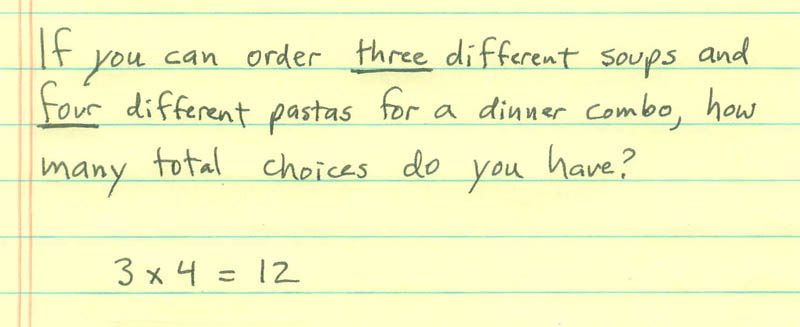 If you can order three different soups and
four different pastas for a dinner combo, how
many total choices do you have?
3 x 4 = 12